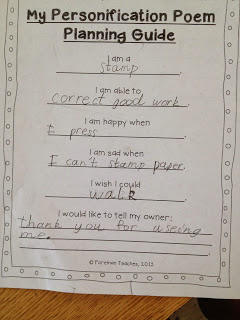 My Personification Poem
Planning Guide
I am a
stamp.
I am able to
correct good work.
I am happy when
I press.
I am sad when
I can't stamp paper.
I wish I could
walk.
I would like to tell my owner:
thank you for useing
me.
© Fareham Teaches, 2013